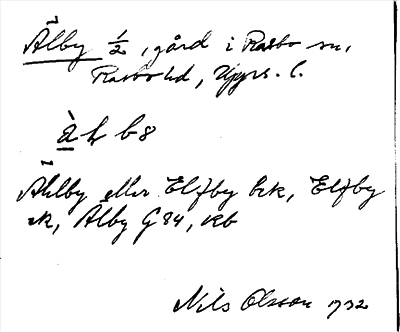 Ålby ½, gård i Rasbo sn,
Rasbo hd, Upps. l.
å h b 8
Ahlby eller Elfby brk, Elfby
rk, Ålby G 84, rkb
Nils Olsson 1932